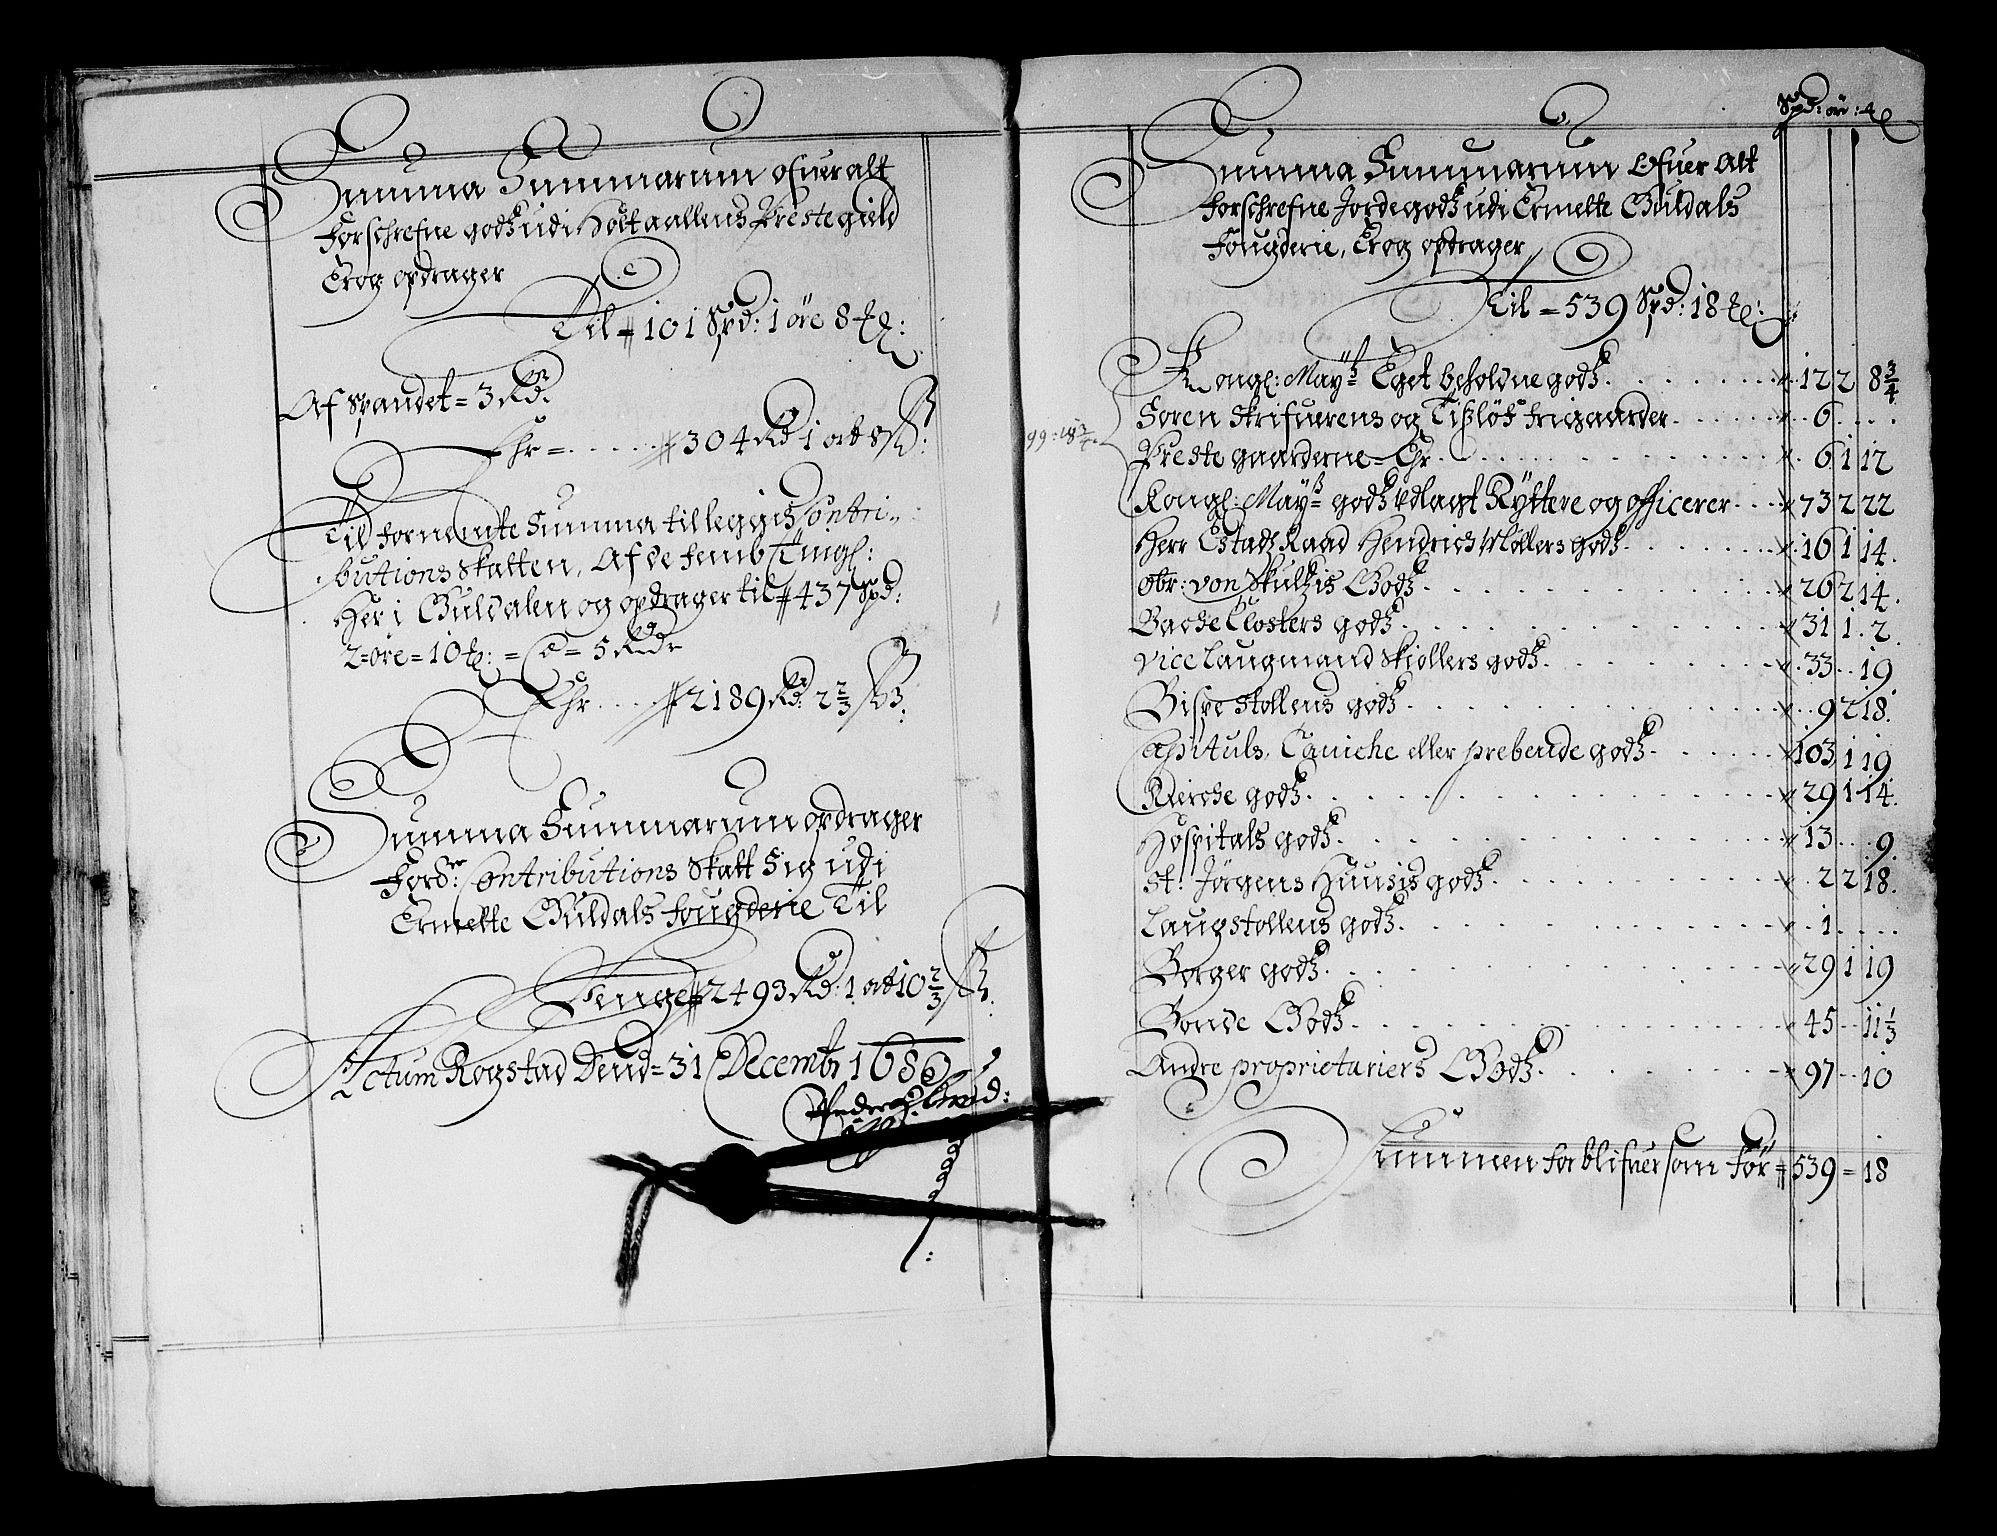 Summa Summarum ofuer alt
forschrefne godtz udi Holtaallens Prestegield
Er og opdrager
Til = 101 Spd: 1 öre 8
Af Spandet = 3 Rdr.
Ehr = . . . . . 304 Rd 1 ort 8 s:
Til formeente Summa tilleggis Contri-
butions skatten, Af de femb Tingl:
Her i Guldalen og opdrager til 437 Spd:
2 = öre = 10 : = a = 5 Rdr
Ehr . . . . 2189 Rd: 2 2/3 s:
Summa Summarum opdrager
Contributions Skatt Sig udi
Ermelte Guldals fougderie Til
Penge 2493 Rd: 1 ort 10 2/3 s.
Actum Rogstad Dend = 31 Decembr
Spd: öre :
Summa Summarum Ofuer Alt
forschrefne Jordegodtz udi Ermelte Guldals
Fougderie, Er og opdrager
Til = 539 Spd: 18 :
Kongl: Mayts Eget beholdne godtz . . . . . . . 122 2 8 3/4
Sören Skrifuerens og frigaarder . . . . . 6 . . .
99 : 18 3/4
Preste gaarderne = Ehr . . . . . . . . . . . 6 1 12
Kongl: Mayts godtz udlagt Ryttere og officerer . . . 73 2 22
Herr Estadtz Raad Hendrich Møllers godtz . . . . . . 16 1 14.
Obr: von Skultzis Godtz . . . . . . . . . . 26 2 14.
Backe Closters godtz . . . . . . . . . . 31 1 . 2
Vice Laugmand Skiøllers godtz . . . . . . . 33 . . 19
Bispe Stollens godtz . . . . . . . . . . 9 2 18.
Capituls, Caniche eller prebende godtz . . . . . . 103 1 19
Kierche godtz . . . . . . . . . . . 29 1 14.
Hospitals godtz . . . . . . . . . . . 13 . . . 9.
St: Jörgens Huusis godtz . . . . . . . . . 2 2 18.
Laugstollens godtz . . . . . . . . . . . 1 . . . .
Borger godtz . . . . . . . . . . . 29 1 19
Bonde Godtz . . . . . . . . . . . 45 . . 11 1/3
Andre proprietariers Godtz . . . . . . . . 97 . . 10
Summen forblifuer som för = 539 = 18